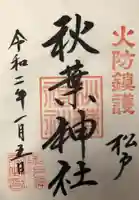 火防鎮護
松戸
秋葉神社
令和二年一月五日